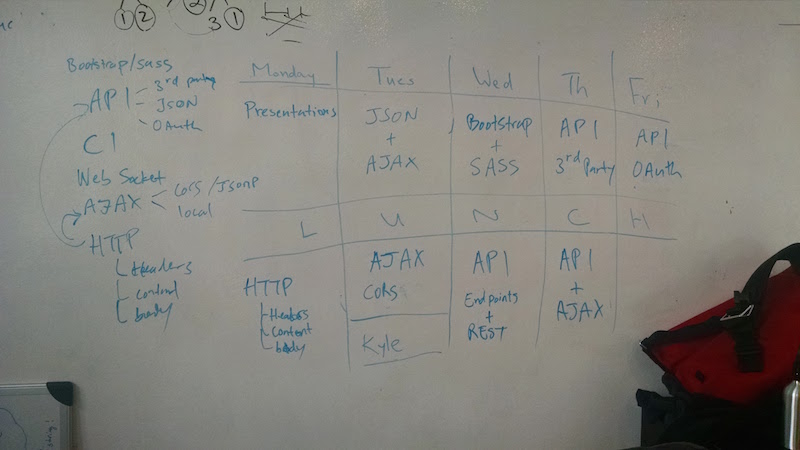 1 2
2
3 1
Bootstrap/Sass
API - 3rd party
- JSON
- OAuth
CI
Web Socket
AJAX < Cors/JsonP
local
HTTP
Headers
content
body
Monday Tues Wed Th Fri
Presentations
JSON
+
AJAX
Bootstrap
+
SASS
API
3rd Party
API
OAuth
L U N C H
HTTP
Headers
Content
body
AJAX
Cors
Kyle
API
Endpoints
+
REST
API
+
AJAX